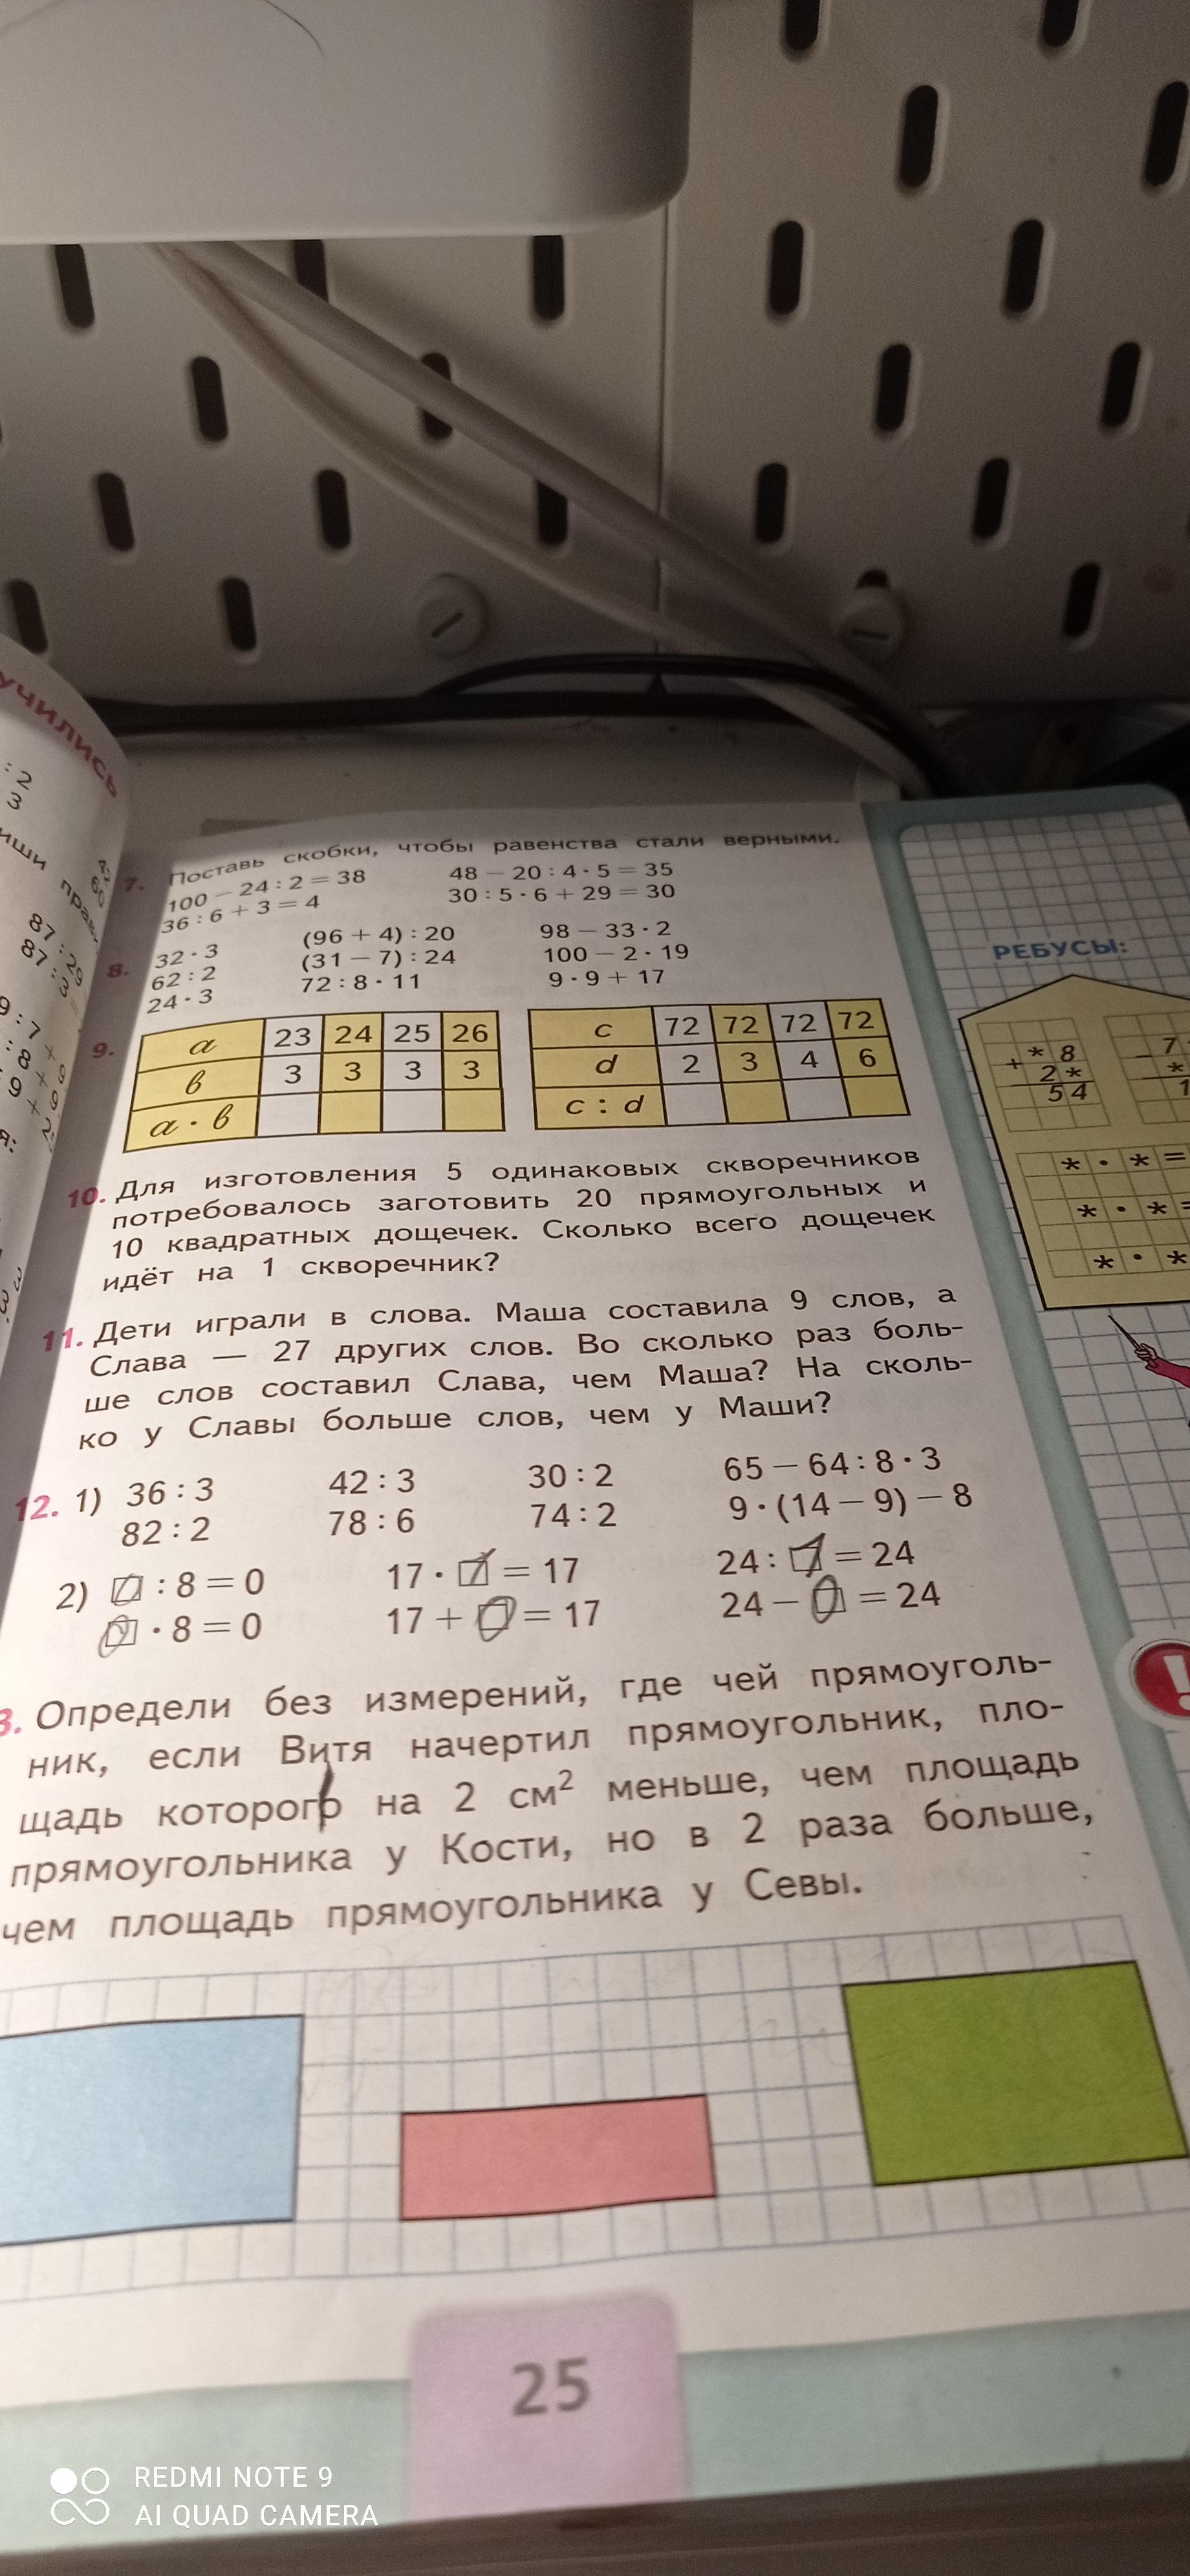 учились
: 2
3
87 : 29
87 : 3
7. Поставь скобки, чтобы равенства стали верными.
100 − 24 : 2 = 38 48 − 20 : 4 · 5 = 35
36 : 6 + 3 = 4 30 : 5 · 6 + 29 = 30
8. 32 · 3 (96 + 4) : 20 98 − 33 · 2
62 : 2 (31 − 7) : 24 100 − 2 · 19
24 · 3 72 : 8 · 11 9 · 9 + 17
9. a 23 24 25 26 c 72 72 72 72
в 3 3 3 3 d 2 3 4 6
a · в c : d
10. Для изготовления 5 одинаковых скворечников
потребовалось заготовить 20 прямоугольных и
10 квадратных дощечек. Сколько всего дощечек
идёт на 1 скворечник?
11. Дети играли в слова. Маша составила 9 слов, а
Слава — 27 других слов. Во сколько раз боль-
ше слов составил Слава, чем Маша? На сколь-
ко у Славы больше слов, чем у Маши?
12. 1) 36 : 3 42 : 3 30 : 2 65 − 64 : 8 · 3
82 : 2 78 : 6 74 : 2 9 · (14 − 9) − 8
2) □ : 8 = 0 17 · □ = 17 24 : □ = 24
□ · 8 = 0 17 + □ = 17 24 − □ = 24
3. Определи без измерений, где чей прямоуголь-
ник, если Витя начертил прямоугольник, пло-
щадь которого на 2 см² меньше, чем площадь
прямоугольника у Кости, но в 2 раза больше,
чем площадь прямоугольника у Севы.
25
РЕБУСЫ:
+ * 8
2 *
5 4
− 7
*
1
* · * =
* · * =
* · *
!
REDMI NOTE 9
AI QUAD CAMERA